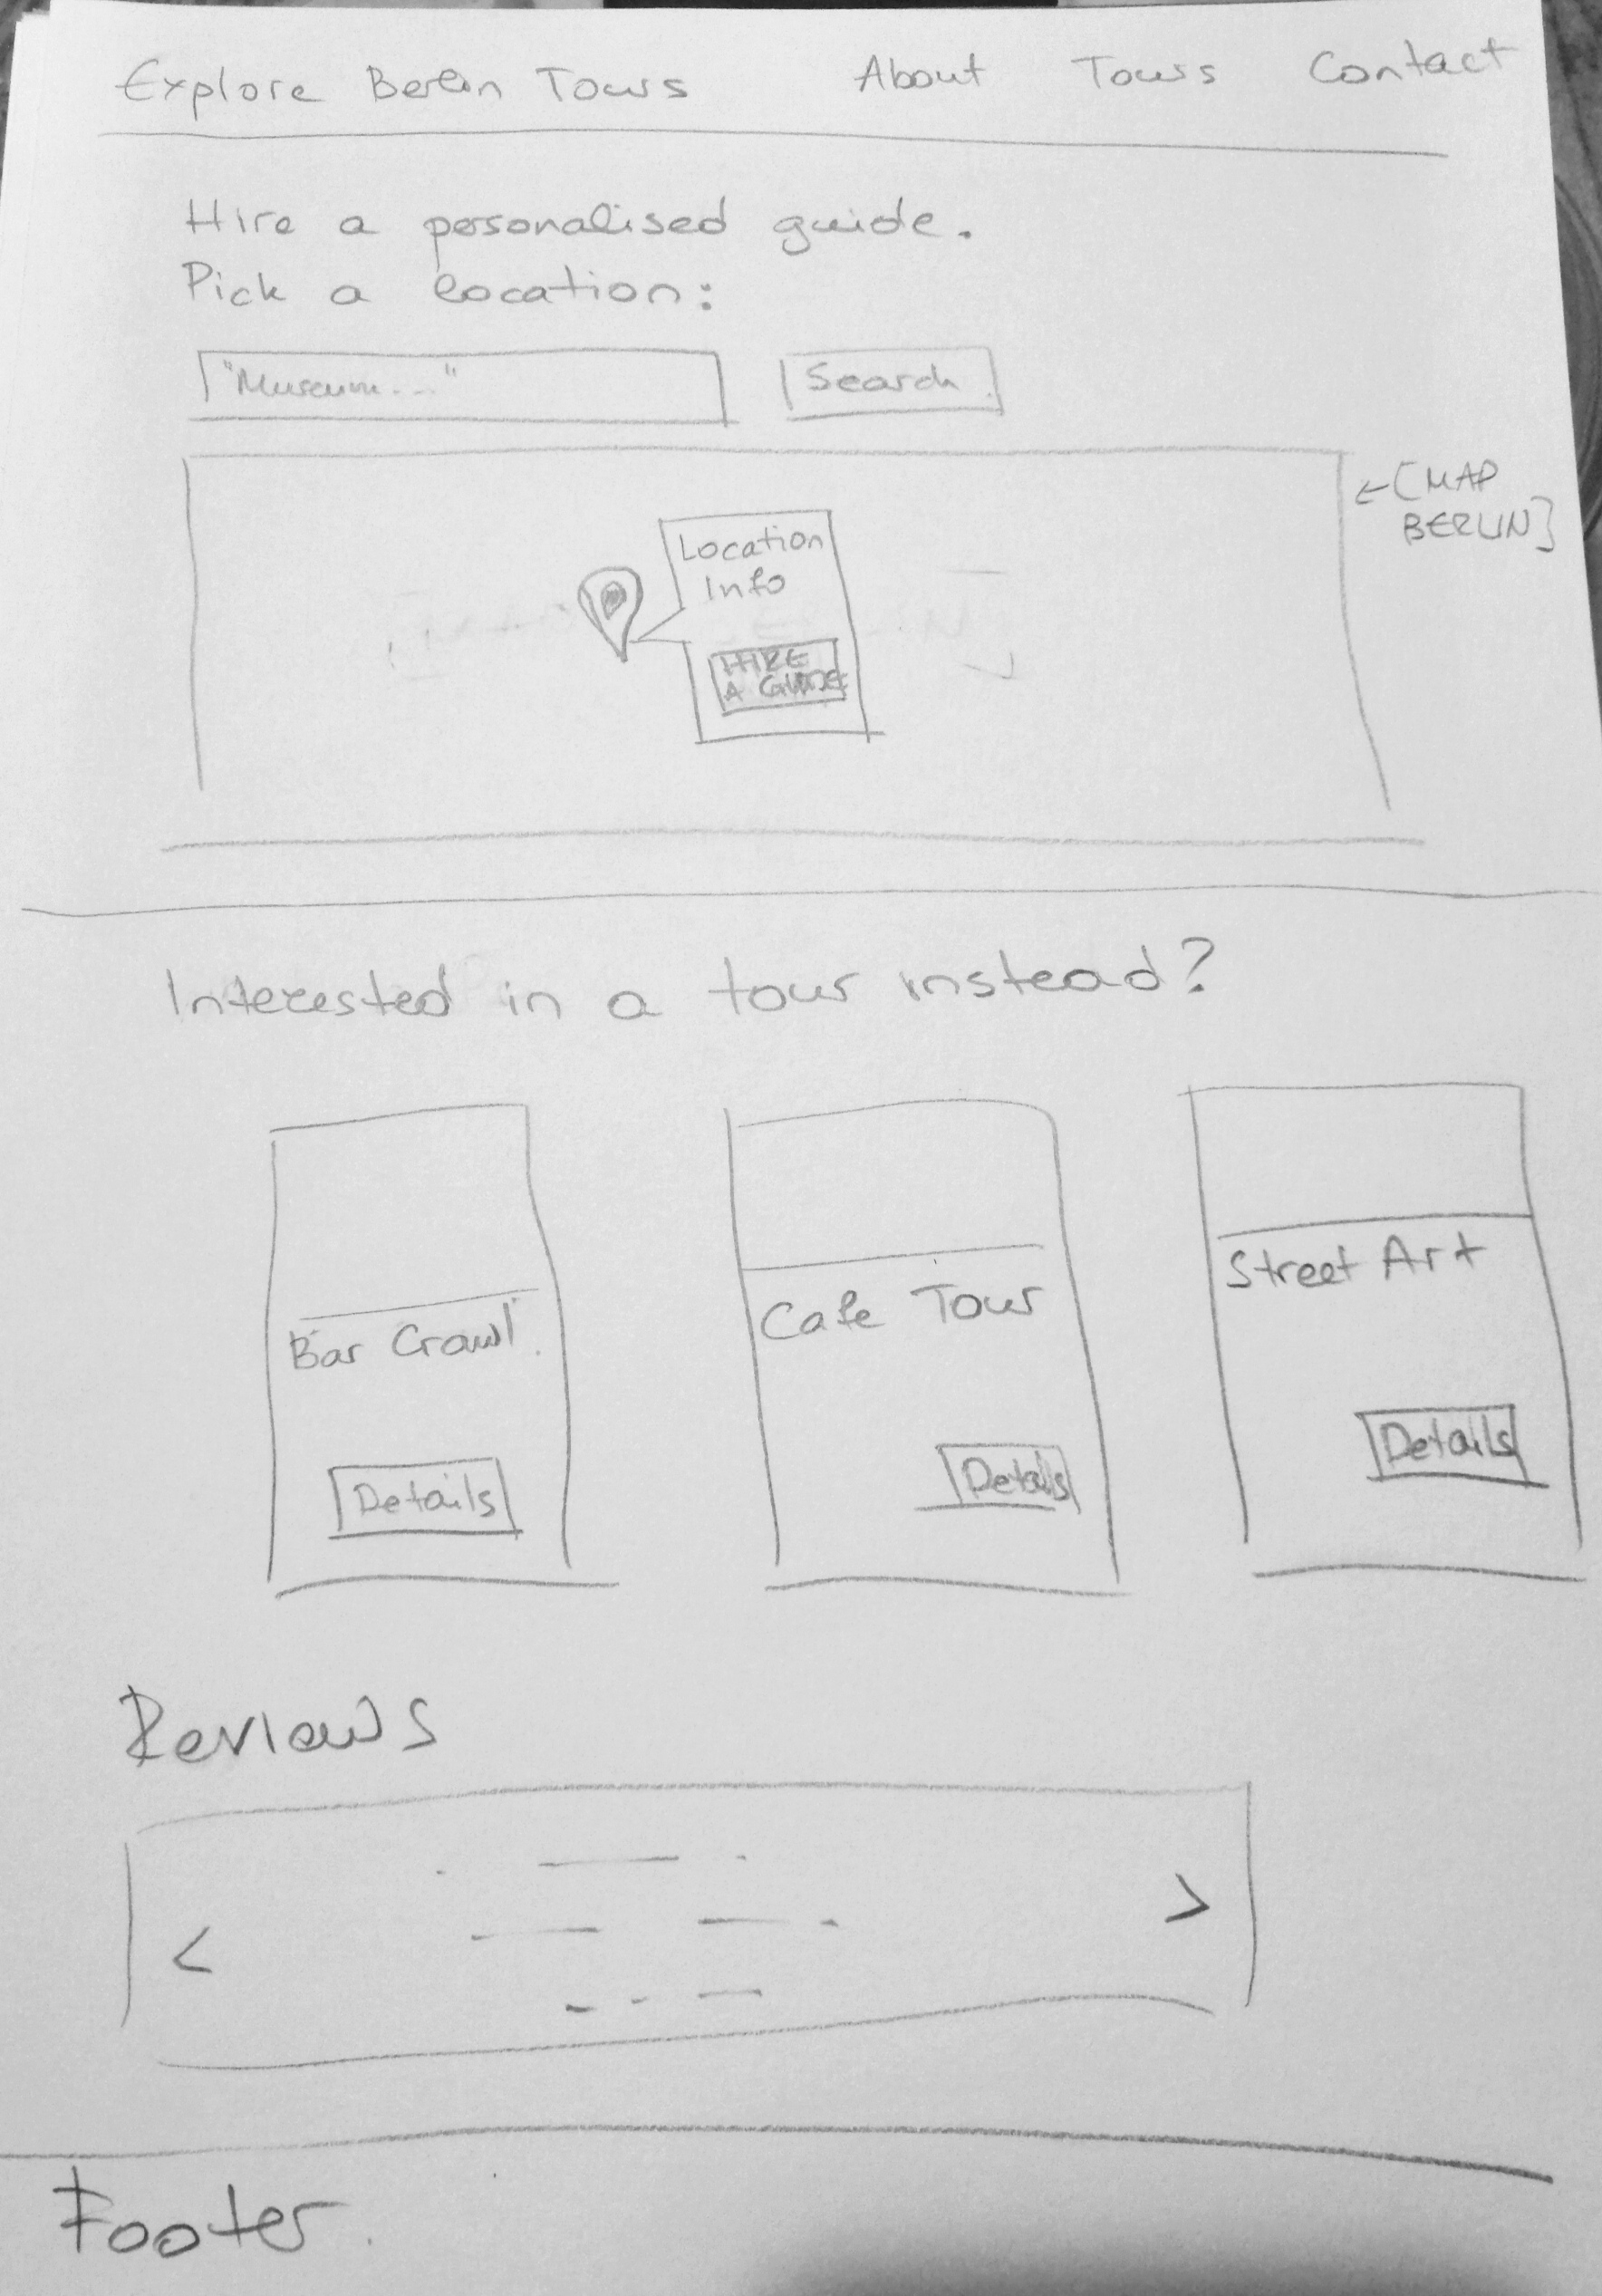 Explore Berlin Tours About Tours Contact
Hire a personalised guide.
Pick a location:
"Museum..." Search
←[MAP
BERLIN]
Location
Info
HIRE
A GUIDE
Interested in a tour instead?
Bar Crawl
Cafe Tour
Street Art
Details
Details
Details
Reviews
< >
Footer